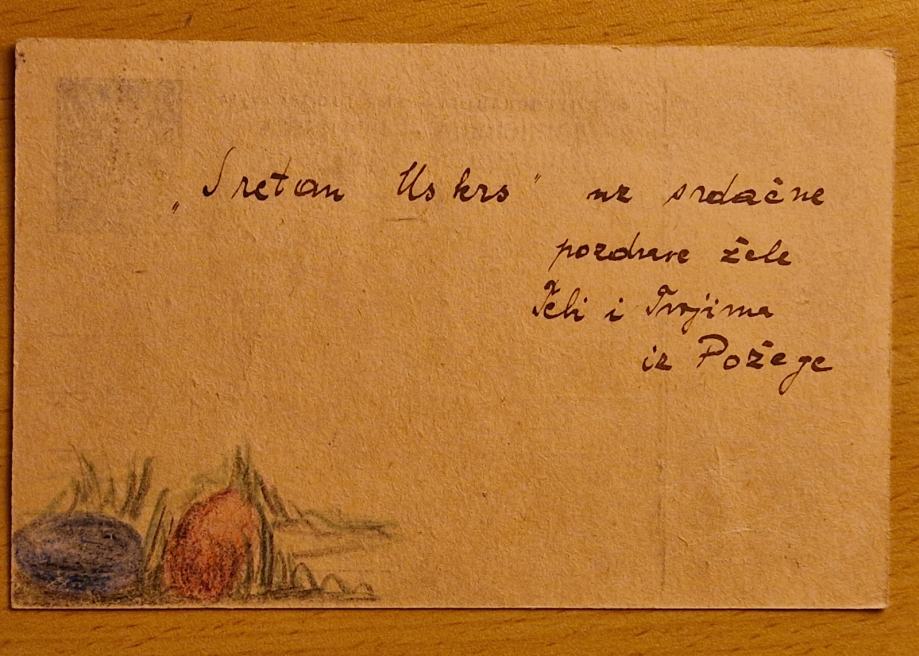 „Sretan Uskrs" uz srdačne
pozdrave žele
Tebi i Tvojima
iz Požege